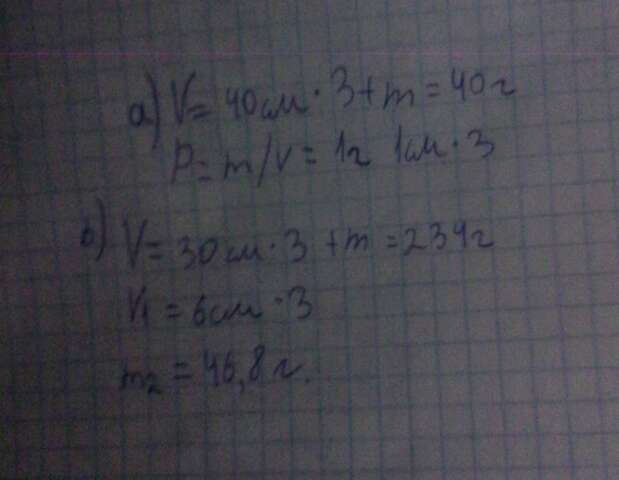 а) V = 40 см · 3 + m = 40 г
P = m/V = 1г 1см · 3
б) V = 30 см · 3 + m = 234 г
V1 = 6 см · 3
m2 = 46,8 г.